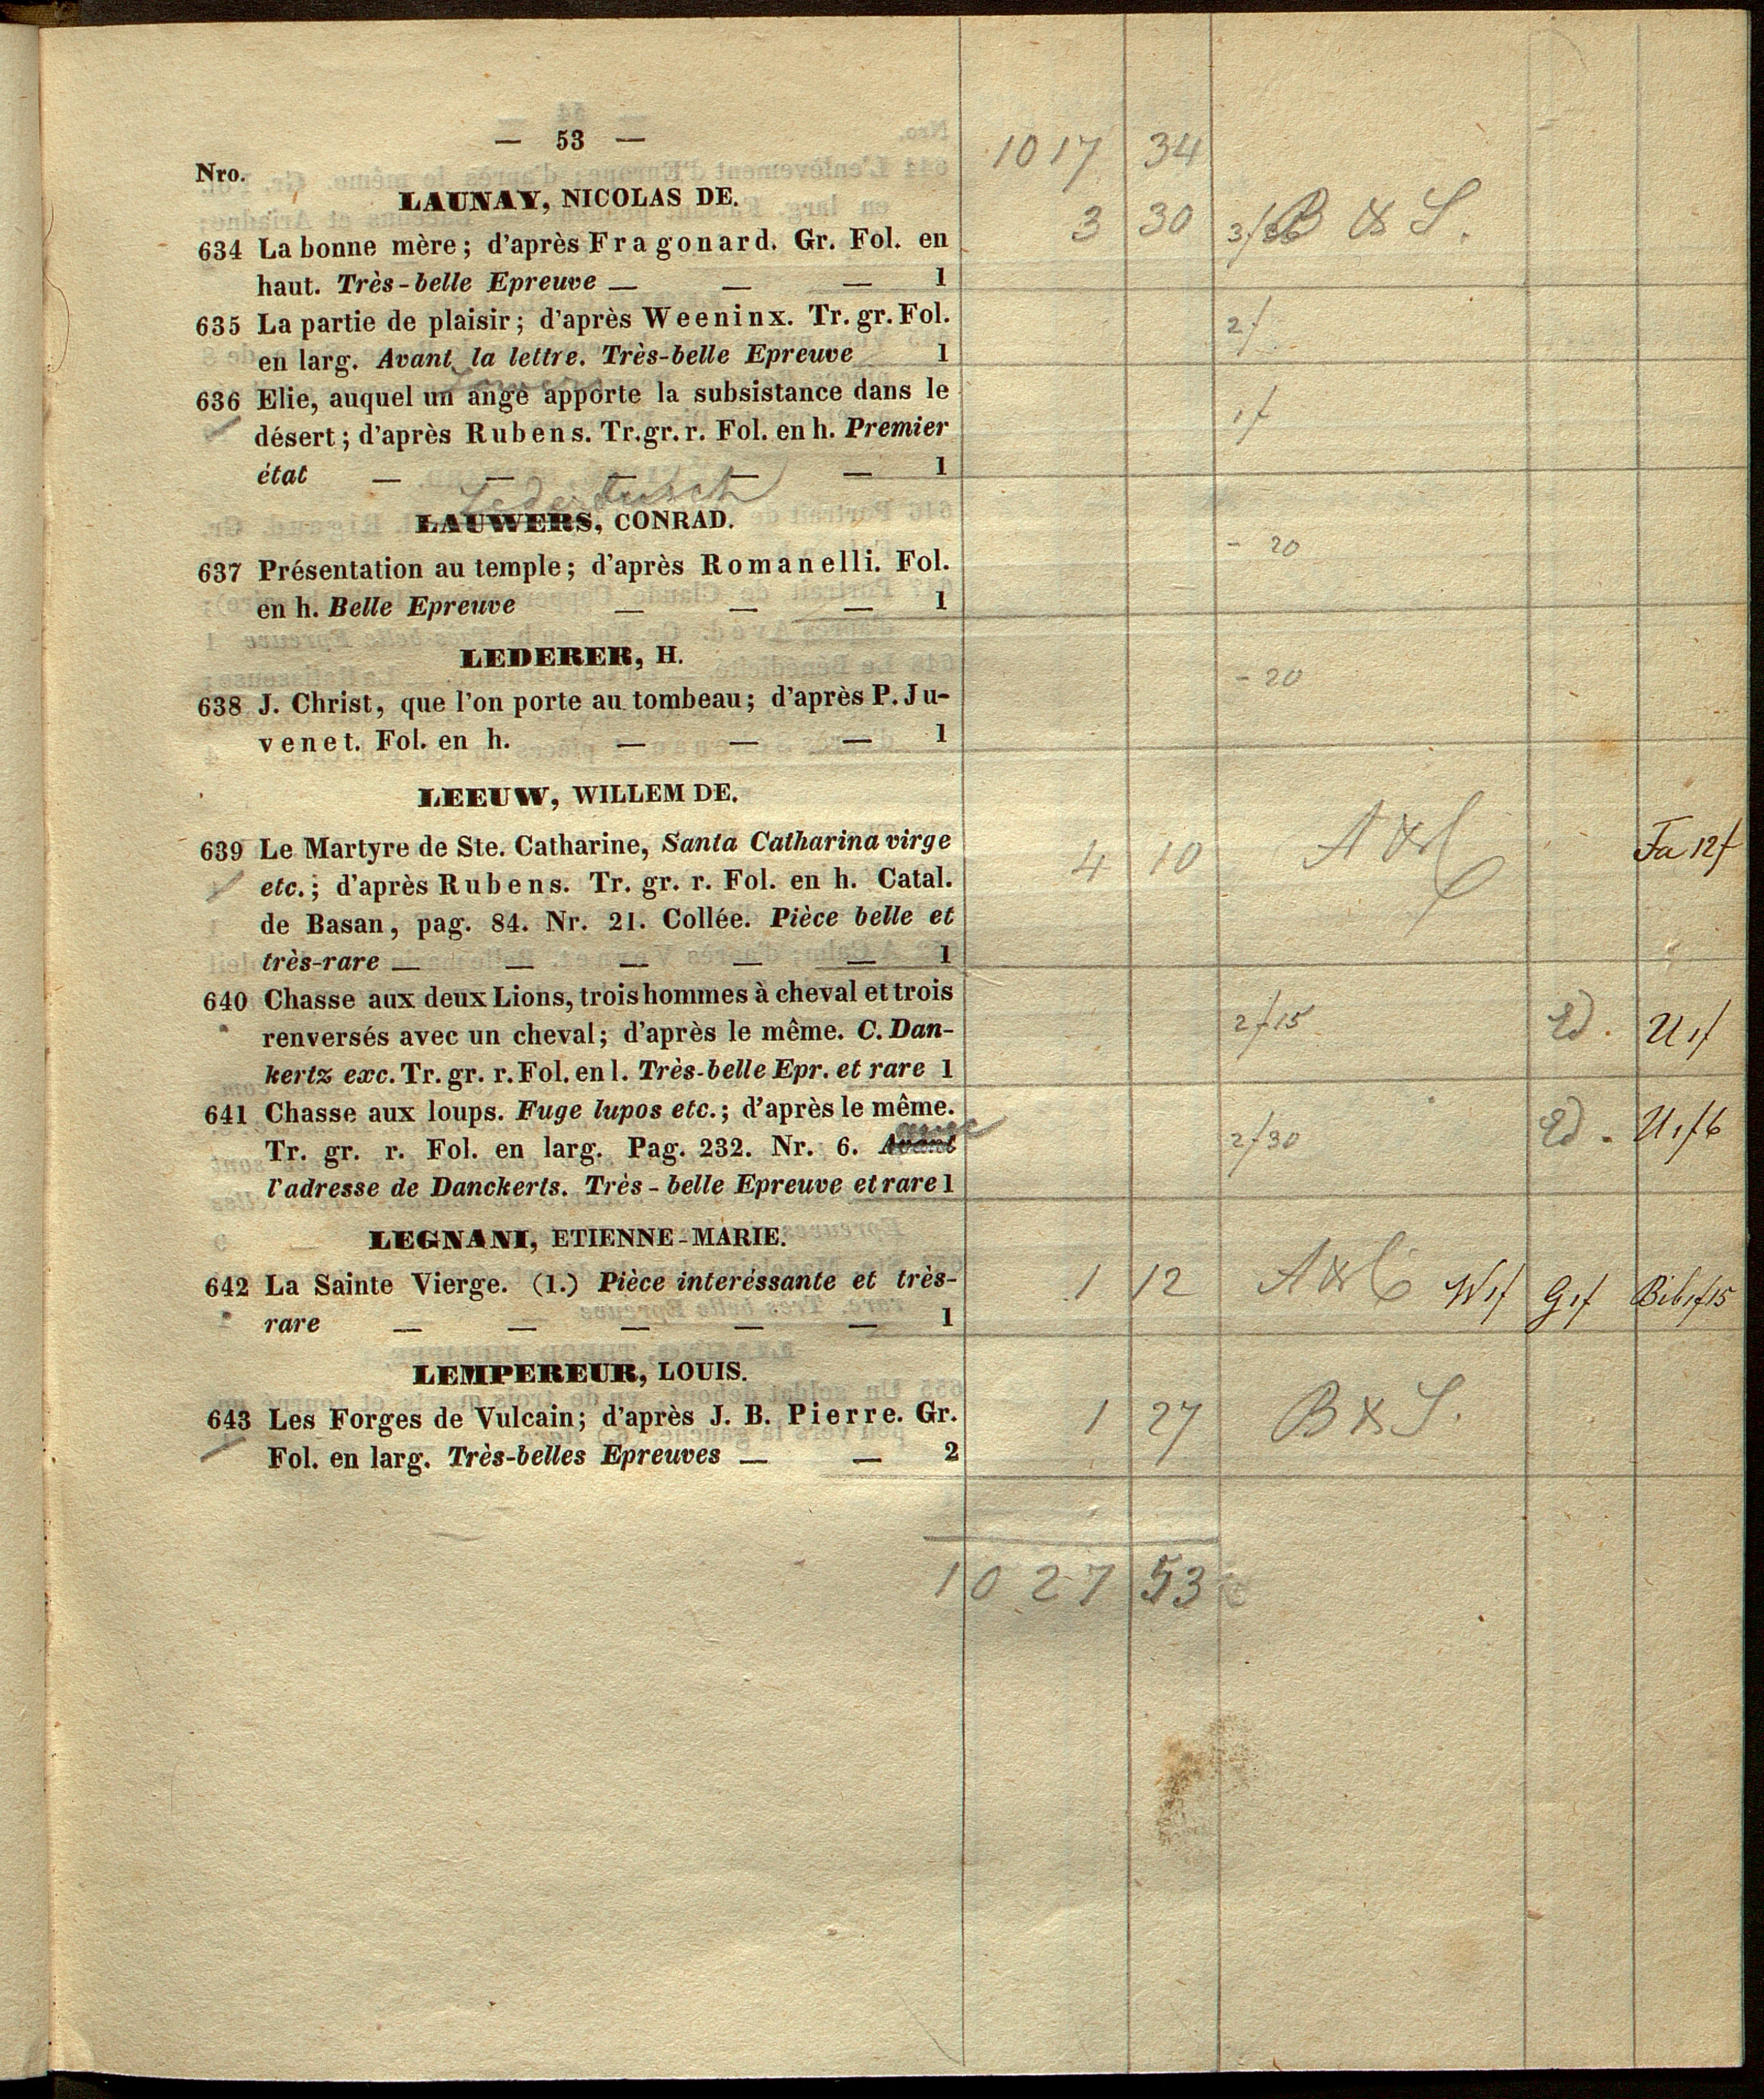 — 53 —
1017 34
Nro.
LAUNAY, NICOLAS DE.
3 30 B & S.
634 La bonne mère; d'après Fragonard. Gr. Fol. en
haut. Très-belle Epreuve — — — 1
635 La partie de plaisir; d'après Weeninx. Tr. gr. Fol. 2f
en larg. Avant la lettre. Très-belle Epreuve 1
Lauwers
636 Elie, auquel un ange apporte la subsistance dans le 1f
désert; d'après Rubens. Tr. gr. r. Fol. en h. Premier
état — — — — — 1
LAUWERS, CONRAD.
- 20
637 Présentation au temple; d'après Romanelli. Fol.
en h. Belle Epreuve — — — 1
LEDERER, H.
- 20
638 J. Christ, que l'on porte au tombeau; d'après P. Ju-
venet. Fol. en h. — — — 1
LEEUW, WILLEM DE.
639 Le Martyre de Ste. Catharine, Santa Catharina virge 4 10 A & C Fa 12f
etc.; d'après Rubens. Tr. gr. r. Fol. en h. Catal.
de Basan, pag. 84. Nr. 21. Collée. Pièce belle et
très-rare — — — — — 1
640 Chasse aux deux Lions, trois hommes à cheval et trois 2f15 Ed. U1f
renversés avec un cheval; d'après le même. C. Dan-
kertz exc. Tr. gr. r. Fol. en l. Très-belle Epr. et rare 1
641 Chasse aux loups. Fuge lupos etc.; d'après le même. 2f30 Ed. U1f6
Tr. gr. r. Fol. en larg. Pag. 232. Nr. 6. Avant
l'adresse de Danckerts. Très-belle Epreuve et rare 1
LEGNANI, ETIENNE-MARIE.
642 La Sainte Vierge. (1.) Pièce interéssante et très- 1 12 A & C W1f G1f Bib1f15
rare — — — — — 1
LEMPEREUR, LOUIS.
643 Les Forges de Vulcain; d'après J. B. Pierre. Gr. 1 27 B & S.
Fol. en larg. Très-belles Epreuves — — 2
1027 53